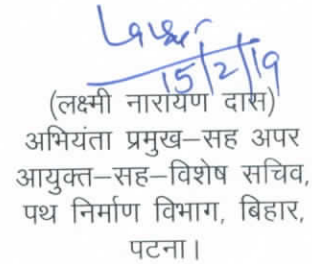 15/2/19
(लक्ष्मी नारायण दास)
अभियंता प्रमुख–सह अपर
आयुक्त–सह–विशेष सचिव,
पथ निर्माण विभाग, बिहार,
पटना।